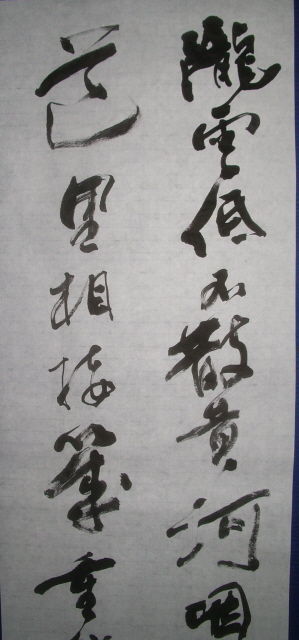 隴雲低不散黄河咽
道里相接幾重